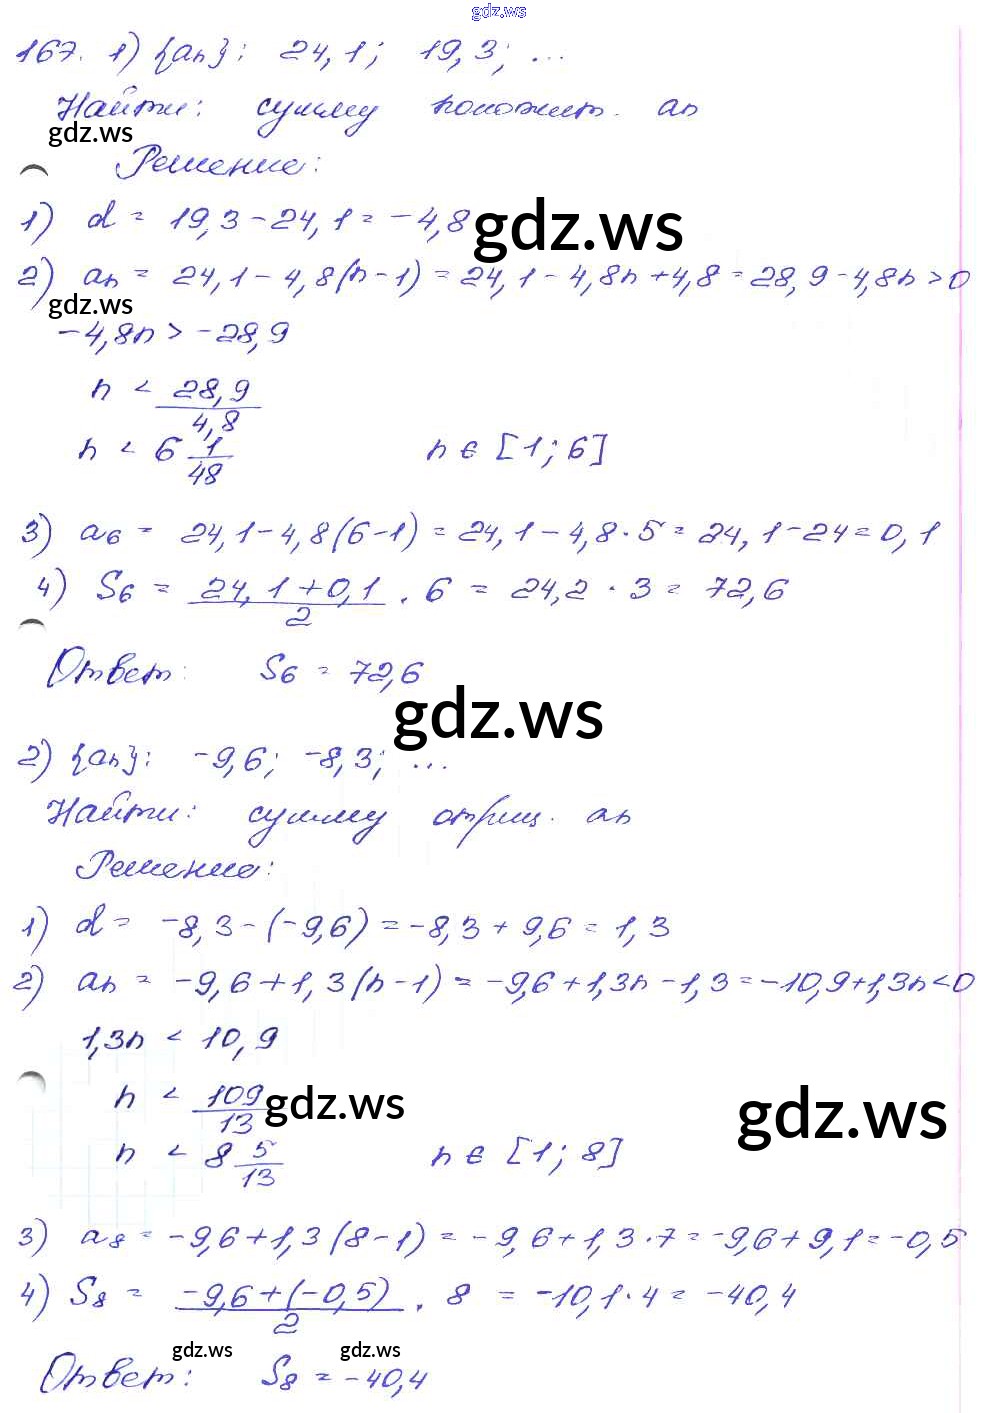 gdz.ws
167. 1) {an}: 24,1; 19,3; ...
Найти: сумму положит. an
gdz.ws
Решение:
1) d = 19,3 - 24,1 = -4,8
gdz.ws
2) an = 24,1 - 4,8(n-1) = 24,1 - 4,8n + 4,8 = 28,9 - 4,8n > 0
gdz.ws
-4,8n > -28,9
n < 28,9/4,8
n < 6 1/48 n ∈ [1; 6]
3) a6 = 24,1 - 4,8(6-1) = 24,1 - 4,8 · 5 = 24,1 - 24 = 0,1
4) S6 = (24,1 + 0,1)/2 · 6 = 24,2 · 3 = 72,6
Ответ: S6 = 72,6
gdz.ws
2) {an}: -9,6; -8,3; ...
Найти: сумму отриц. an
Решение:
1) d = -8,3 - (-9,6) = -8,3 + 9,6 = 1,3
2) an = -9,6 + 1,3(n-1) = -9,6 + 1,3n - 1,3 = -10,9 + 1,3n < 0
1,3n < 10,9
n < 109/13
gdz.ws gdz.ws
n < 8 5/13 n ∈ [1; 8]
3) a8 = -9,6 + 1,3(8-1) = -9,6 + 1,3 · 7 = -9,6 + 9,1 = -0,5
4) S8 = (-9,6 + (-0,5))/2 · 8 = -10,1 · 4 = -40,4
gdz.ws gdz.ws
Ответ: S8 = -40,4